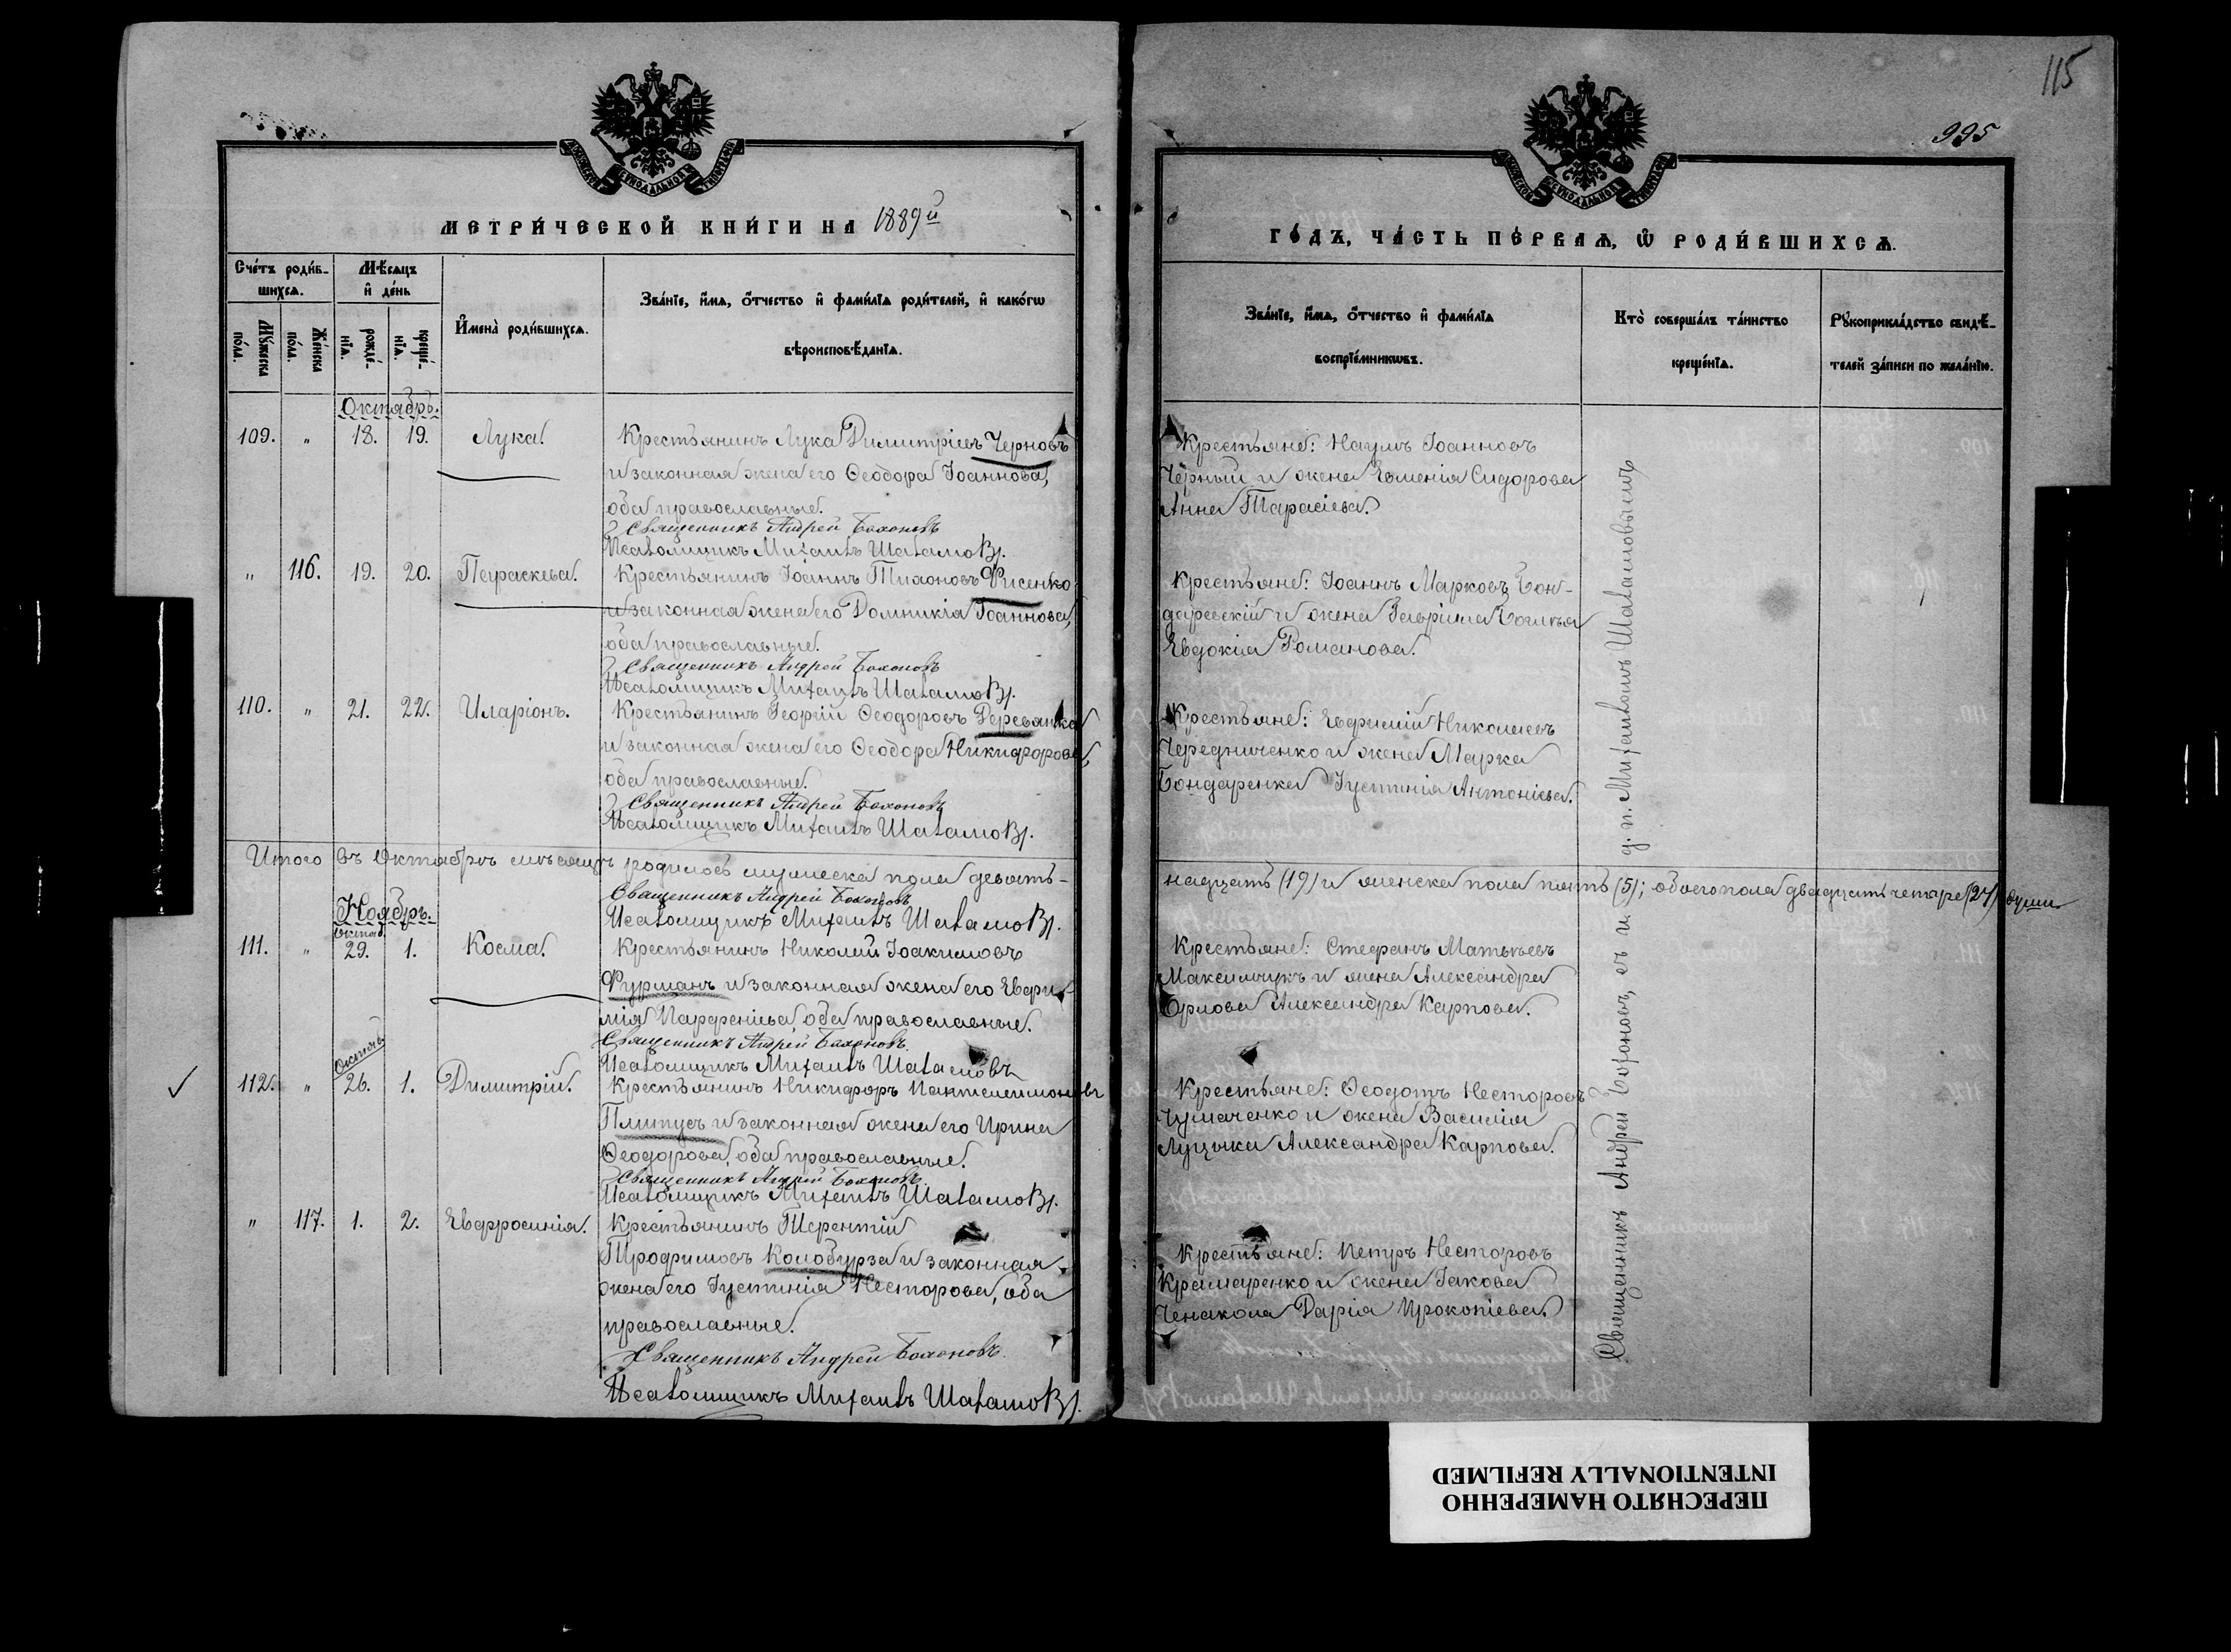 115
995
МЕТРИ́ЧЕСКОЙ КНИ́ГИ НА 1889й
ГО́ДЪ, ЧА́СТЬ ПЕ́РВАѦ, Ѡ҆ РОДИ́ВШИХСѦ.
Сче́тъ роди́в-
шихсѧ.
Мѣ́сѧцъ
и҆ де́нь
Мꙋ́жеска
по́ла.
Же́нска
по́ла.
рожде́-
нїѧ.
креще́-
нїѧ.
И҆мена̀ роди́вшихсѧ.
Зва́нїе, и҆́мѧ, ѻ҆́тчество и҆ фами́лїѧ роди́телей, и҆ како́гѡ
вѣроисповѣ́данїѧ.
Зва́нїе, и҆́мѧ, ѻ҆́тчество и҆ фами́лїѧ
воспрїе́мникѡвъ.
Кто̀ соверша́лъ та́инство
креще́нїѧ.
Рꙋкоприкла́дство свидѣ́-
телей за́писи по жела́нїю.
Октябрь.
109. " 18. 19. Лука. Крестьянинъ Лука Димитріевъ Черновъ
и законная жена его Ѳеодора Іоаннова,
оба православные.
Священникъ Андрей Бохоновъ
Псаломщикъ Михаилъ Шаламовъ.
Крестьяне: Наумъ Іоанновъ
Черный и жена Евменія Сидорова
Анна Тарасіева.
" 116. 19. 20. Параскева. Крестьянинъ Іоаннъ Тихоновъ Фисенко
и законная жена его Домникія Іоаннова,
оба православные.
Священникъ Андрей Бохоновъ
Псаломщикъ Михаилъ Шаламовъ.
Крестьяне: Іоаннъ Марковъ Бон-
даревскій и жена Гавріила
Евдокія Романова.
110. " 21. 22. Иларіонъ. Крестьянинъ Георгій Ѳеодоровъ Деревянко
и законная жена его Ѳеодора Никифорова,
оба православные.
Священникъ Андрей Бохоновъ
Псаломщикъ Михаилъ Шаламовъ.
Крестьяне: Евфимій Николаевъ
Чередниченко и жена Марка
Бондаренка Іустинія Антоніева.
Итого въ Октябрѣ мѣсяцѣ родилось мужеска пола девять-
надцать (19) и женска пола пять (5); обоего пола двадцать четыре (24) души
Священникъ Андрей Бохоновъ
Псаломщикъ Михаилъ Шаламовъ.
Ноябрь.
Октяб.
111. " 29. 1. Косма. Крестьянинъ Николай Іоакимовъ
Фурманъ и законная жена его Евфи-
мія Парфеніева, оба православные.
Священникъ Андрей Бохоновъ.
Псаломщикъ Михаилъ Шаламовъ
Крестьяне: Стефанъ Матвѣевъ
Максимчукъ и жена Александра
Орлова Александра Карпова.
Октяб.
112. " 26. 1. Димитрій. Крестьянинъ Никифоръ Пантелеимоновъ
Плитусъ и законная жена его Ирина
Ѳеодорова, оба православные.
Священникъ Андрей Бохоновъ.
Псаломщикъ Михаилъ Шаламовъ.
Крестьяне: Ѳеодотъ Несторовъ
Чумаченко и жена Василія
Луцыка Александра Карпова.
" 117. 1. 2. Евфросинія. Крестьянинъ Терентій
Трофимовъ Колобурза и законная
жена его Іустинія Несторова, оба
православные.
Священникъ Андрей Бохоновъ.
Псаломщикъ Михаилъ Шаламовъ.
Крестьяне: Петръ Несторовъ
Крамаренко и жена Іакова
Ченакола Дарія Прокопіева.
Священникъ Андрей Бохоновъ, съ и. д. п. Михаиломъ Шаламовымъ
ПЕРЕСНЯТО НАМЕРЕННО
INTENTIONALLY REFILMED